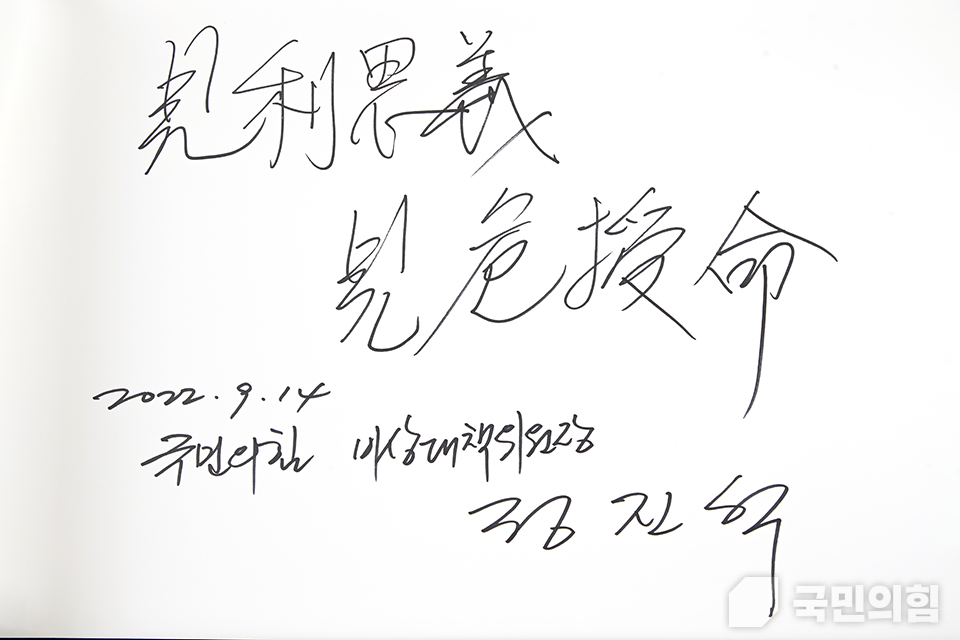 見利思義
見危授命
2022. 9. 14
국민의힘 비상대책위원장
정진석
국민의힘